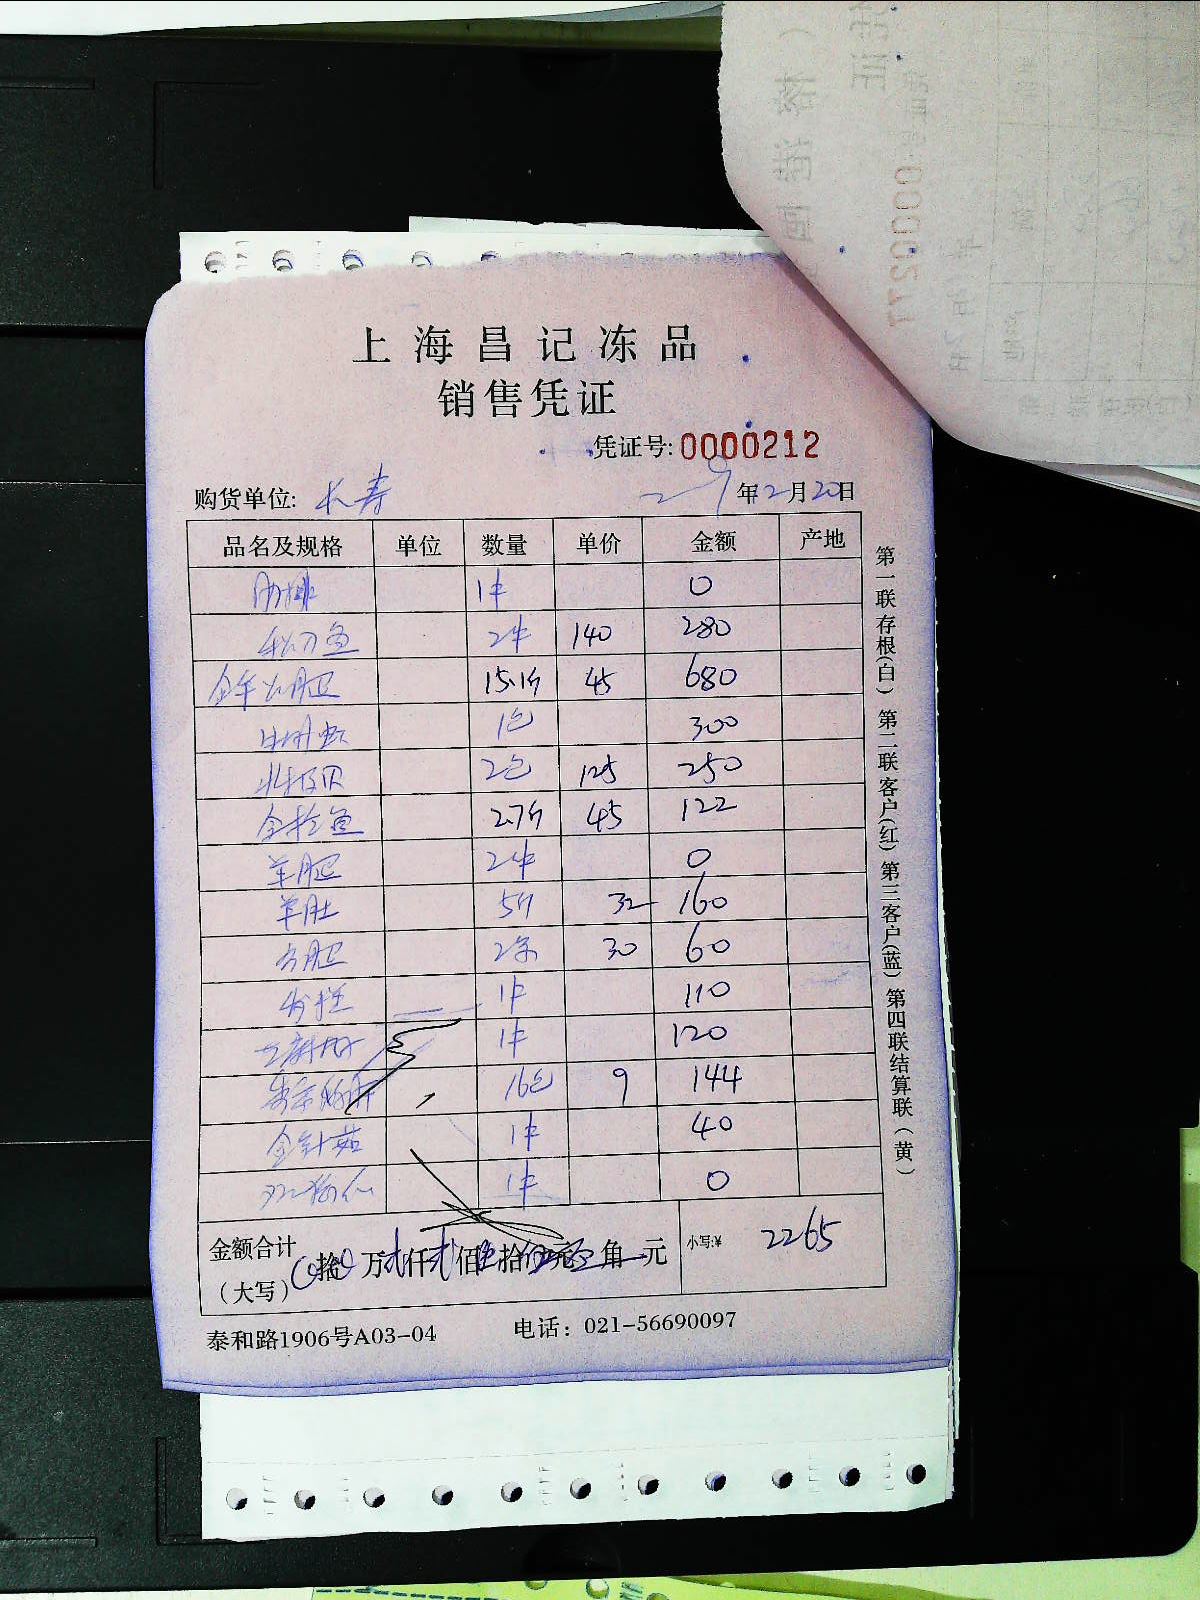 上海昌记冻品
销售凭证
凭证号: 0000212
购货单位: 长寿 年2月20日
品名及规格 单位 数量 单价 金额 产地
肋排 1件 0
秋刀鱼 2件 140 280
15.1斤 45 680
1包 300
北极贝 2包 125 250
金枪鱼 2.7斤 45 122
羊腿 2件 0
羊肚 5斤 32 160
2条 30 60
1件 110
1件 120
16包 9 144
金针菇 1件 40
1件 0
金额合计
(大写) 拾 万 仟 佰 拾 角 元 小写:¥ 2265
泰和路1906号A03-04 电话: 021-56690097
第一联存根(白) 第二联客户(红) 第三客户(蓝) 第四联结算联(黄)
0000277